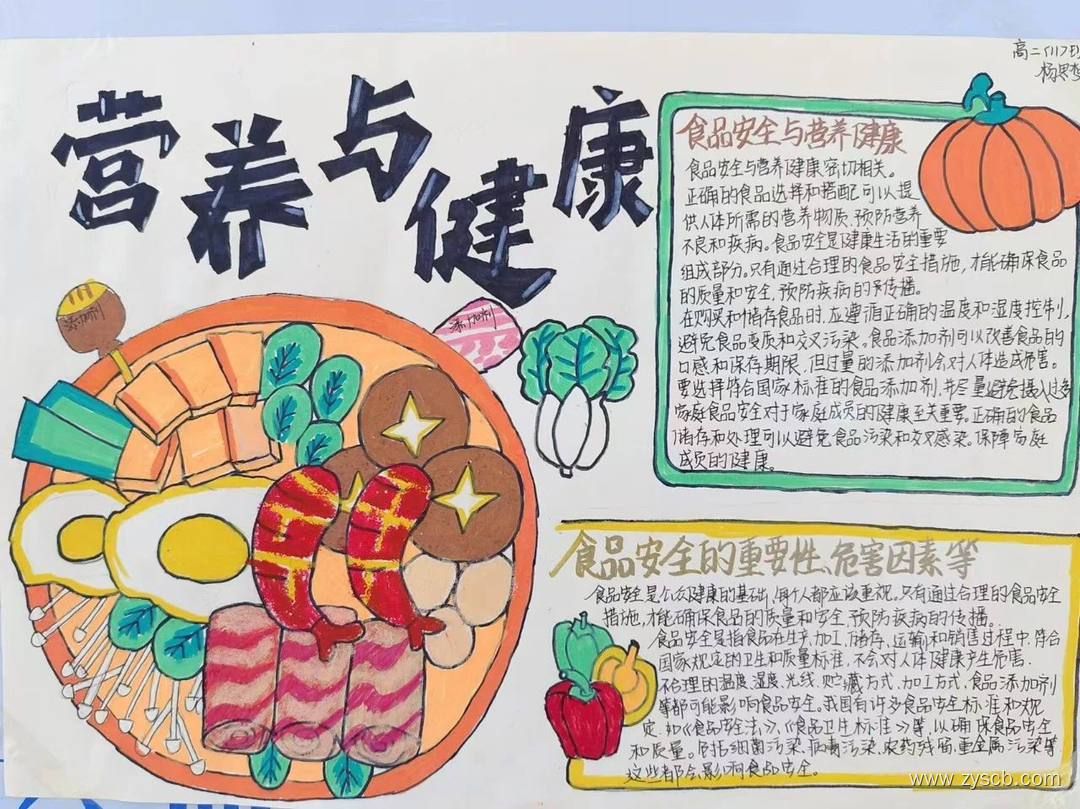 高二(11)班
杨思梦
营养与健康
添加剂
添加剂
食品安全与营养健康
食品安全与营养健康密切相关。
正确的食品选择和搭配可以提
供人体所需的营养物质、预防营养
不良和疾病。食品安全是健康生活的重要
组成部分。只有通过合理的食品安全措施,才能确保食品
的质量和安全,预防疾病的传播。
在购买和储存食品时,应遵循正确的温度和湿度控制,
避免食品变质和交叉污染。食品添加剂可以改善食品的
口感和保存期限,但过量的添加剂会对人体造成危害。
要选择符合国家标准的食品添加剂,并尽量避免摄入过多
家庭食品安全对于家庭成员的健康至关重要。正确的食品
储存和处理可以避免食品污染和交叉感染。保障家庭
成员的健康。
食品安全的重要性、危害因素等
食品安全是公众健康的基础,每个人都应该重视。只有通过合理的食品安全
措施,才能确保食品的质量和安全,预防疾病的传播。
食品安全是指食品在生产、加工、储存、运输和销售过程中,符合
国家规定的卫生和质量标准,不会对人体健康产生危害.
不合理的温度、湿度、光线、贮藏方式、加工方式、食品添加剂
等都可能影响食品安全。我国有许多食品安全标准和规
定,如《食品安全法》、《食品卫生标准》等,以确保食品安全
和质量。包括细菌污染、病毒污染、农药残留、重金属污染等
这些都会影响食品安全。
www.zyscb.com